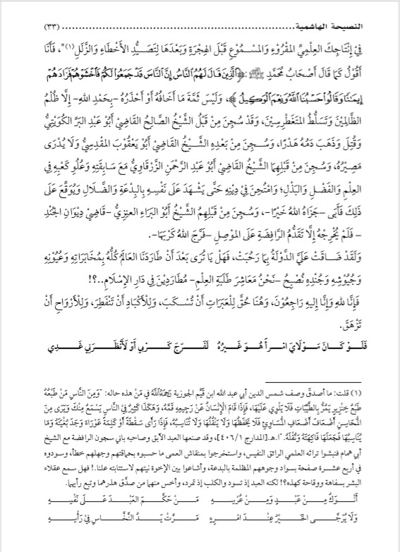 النصيحة الهاشمية (٣٣)
فِي إِنْتَاجِكَ العِلْمِيِّ المَقْرُوءِ وَالمَسْمُوعِ قَبْلَ الهِجْرَةِ وَبَعْدَهَا لِتَصَيُّدِ الأَخْطَاءِ وَالزَّلَلِ"(١)، فَأَنَا
أَقُولُ كَمَا قَالَ أَصْحَابُ مُحَمَّدٍ ﷺ: ﴿الَّذِينَ قَالَ لَهُمُ النَّاسُ إِنَّ النَّاسَ قَدْ جَمَعُوا لَكُمْ فَاخْشَوْهُمْ فَزَادَهُمْ
إِيمَانًا وَقَالُوا حَسْبُنَا اللَّهُ وَنِعْمَ الْوَكِيلُ﴾، وَلَيْسَ ثَمَّةَ مَا أَخَافُهُ أَوْ أَحْذَرُهُ -بِحَمْدِ اللهِ- إِلَّا ظُلْمُ
الظَّالِمِينَ وَتَسَلُّطُ المُتَغَطْرِسِينَ، وَقَدْ سُجِنَ مِنْ قَبْلُ الشَّيْخُ الصَّالِحُ القَاضِي أَبُو عَبْدِ البَرِّ الكُوَيْتِيُّ
وَقُتِلَ وَذَهَبَ دَمُهُ هَدْرًا، وَسُجِنَ مِنْ بَعْدِهِ الشَّيْخُ القَاضِي أَبُو يَعْقُوبَ المَقْدِسِيُّ وَلَا يُدْرَى
مَصِيرُهُ، وَسُجِنَ مِنْ قَبْلِهِمَا الشَّيْخُ القَاضِي أَبُو عَبْدِ الرَّحْمَنِ الزَّرْقَاوِيُّ مَعَ سَابِقَتِهِ وَعُلُوِّ كَعْبِهِ فِي
العِلْمِ وَالفَضْلِ وَالبَذْلِ؛ وَامْتُحِنَ فِي دِينِهِ حَتَّى يَشْهَدَ عَلَى نَفْسِهِ بِالبِدْعَةِ وَالضَّلَالِ وَيُوَقِّعَ عَلَى
ذَلِكَ فَأَبَى -جَزَاهُ اللهُ خَيْرًا-، وَسُجِنَ مِنْ قَبْلِهِمُ الشَّيْخُ أَبُو البَرَاءِ العتِيرِيُّ -قَاضِي دِيوَانِ الجُنْدِ
- فَلَمْ يُخْرِجْهُ إِلَّا تَقَدُّمُ الرَّافِضَةِ عَلَى المَوْصِلِ -فَرَّجَ اللهُ كَرْبَهَا-.
وَلَقَدْ ضَاقَتْ عَلَيَّ الدَّوْلَةُ بِمَا رَحُبَتْ، فَهَلْ يَا تُرَى بَعْدَ أَنْ طَارَدَنَا العَالَمُ كُلُّهُ بِمُخَابَرَاتِهِ وَعُيُونِهِ
وَجُيُوشِهِ وَجُنْدِهِ نُصْبِحُ -نَحْنُ مَعَاشِرَ طَلَبَةِ العِلْمِ- مُطَارَدِينَ فِي دَارِ الإِسْلَامِ..؟!
فَإِنَّا للهِ وَإِنَّا إِلَيهِ رَاجِعُونَ، وَهُنَا حُقَّ لِلْعَبَرَاتِ أَنْ تُسْكَبَ، وَلِلْأَكْبَادِ أَنْ تَنْفَطِرَ، وَلِلْأَرْوَاحِ أَنْ
تَزْهَقَ.
فَلَوْ كَانَ مَوْلَايَ امْرَأً هُوَ غَيْرُهُ لَفَرَّجَ كَرْبِي أَوْ لَأَنْظَرَنِي غَدِي
(١) قلت: ما أصدق وصف شمس الدين أبي عبد الله ابن قيم الجوزية رحمه الله في مَن هذه حاله: "وَمِنَ النَّاسِ مَنْ طَبْعُهُ
طَبْعُ خِنْزِيرٍ يَمُرُّ بِالطَّيِّبَاتِ فَلَا يَلْوِي عَلَيْهَا، فَإِذَا قَامَ الْإِنْسَانُ عَنْ رَجِيعِهِ قَمَّهُ، وَهَكَذَا كَثِيرٌ فِي النَّاسِ يَسْمَعُ مِنْكَ وَيَرَى مِنَ
الْمَحَاسِنِ أَضْعَافَ أَضْعَافِ الْمَسَاوِئِ فَلَا يَحْفَظُهَا وَلَا يَنْقُلُهَا وَلَا تُنَاسِبُهُ، فَإِذَا رَأَى سَقْطَةً أَوْ كَلِمَةً عَوْرَاءَ وَجَدَ بُغْيَتَهُ وَمَا
يُنَاسِبُهَا فَجَعَلَهَا فَاكِهَتَهُ وَنُقْلَهُ". ا.هـ [المدارج ٤٠٦/١]، وقد صنعها العبد الآبق وصاحبه باني سجون الرافضة مع الشيخ
أبي همام فنبشوا تراثه العلمي الرائق النفيس، واستخرجوا بمنقاش العمى ما حسبوه بجهالتهم وجهلهم خطأ، وسودوه
في أربع عشرة صفحة بسواد وجوههم المظلمة بالبدعة، وأشاعوا بين الإخوة نيتهم لاستتابته علنا.! فهل سمع عقلاء
البشر بسفاهة ووقاحة كهذه؟! لكنه العبد إذ تسود والكلب إذ تمرد، وأخس منهما من صدَّق هذرهما وتبع رأيهما.
أَنْوَكُ مِنْ عَبْدٍ وَمِنْ عِرْسِهِ مَنْ حَكَّمَ العَبْدَ عَلَى نَفْسِهِ
وَلَا يُرَجَّى الخَيْرُ عِنْدَ امْرِئٍ مَرَّتْ يَدُ النَّخَّاسِ فِي رَأْسِهِ